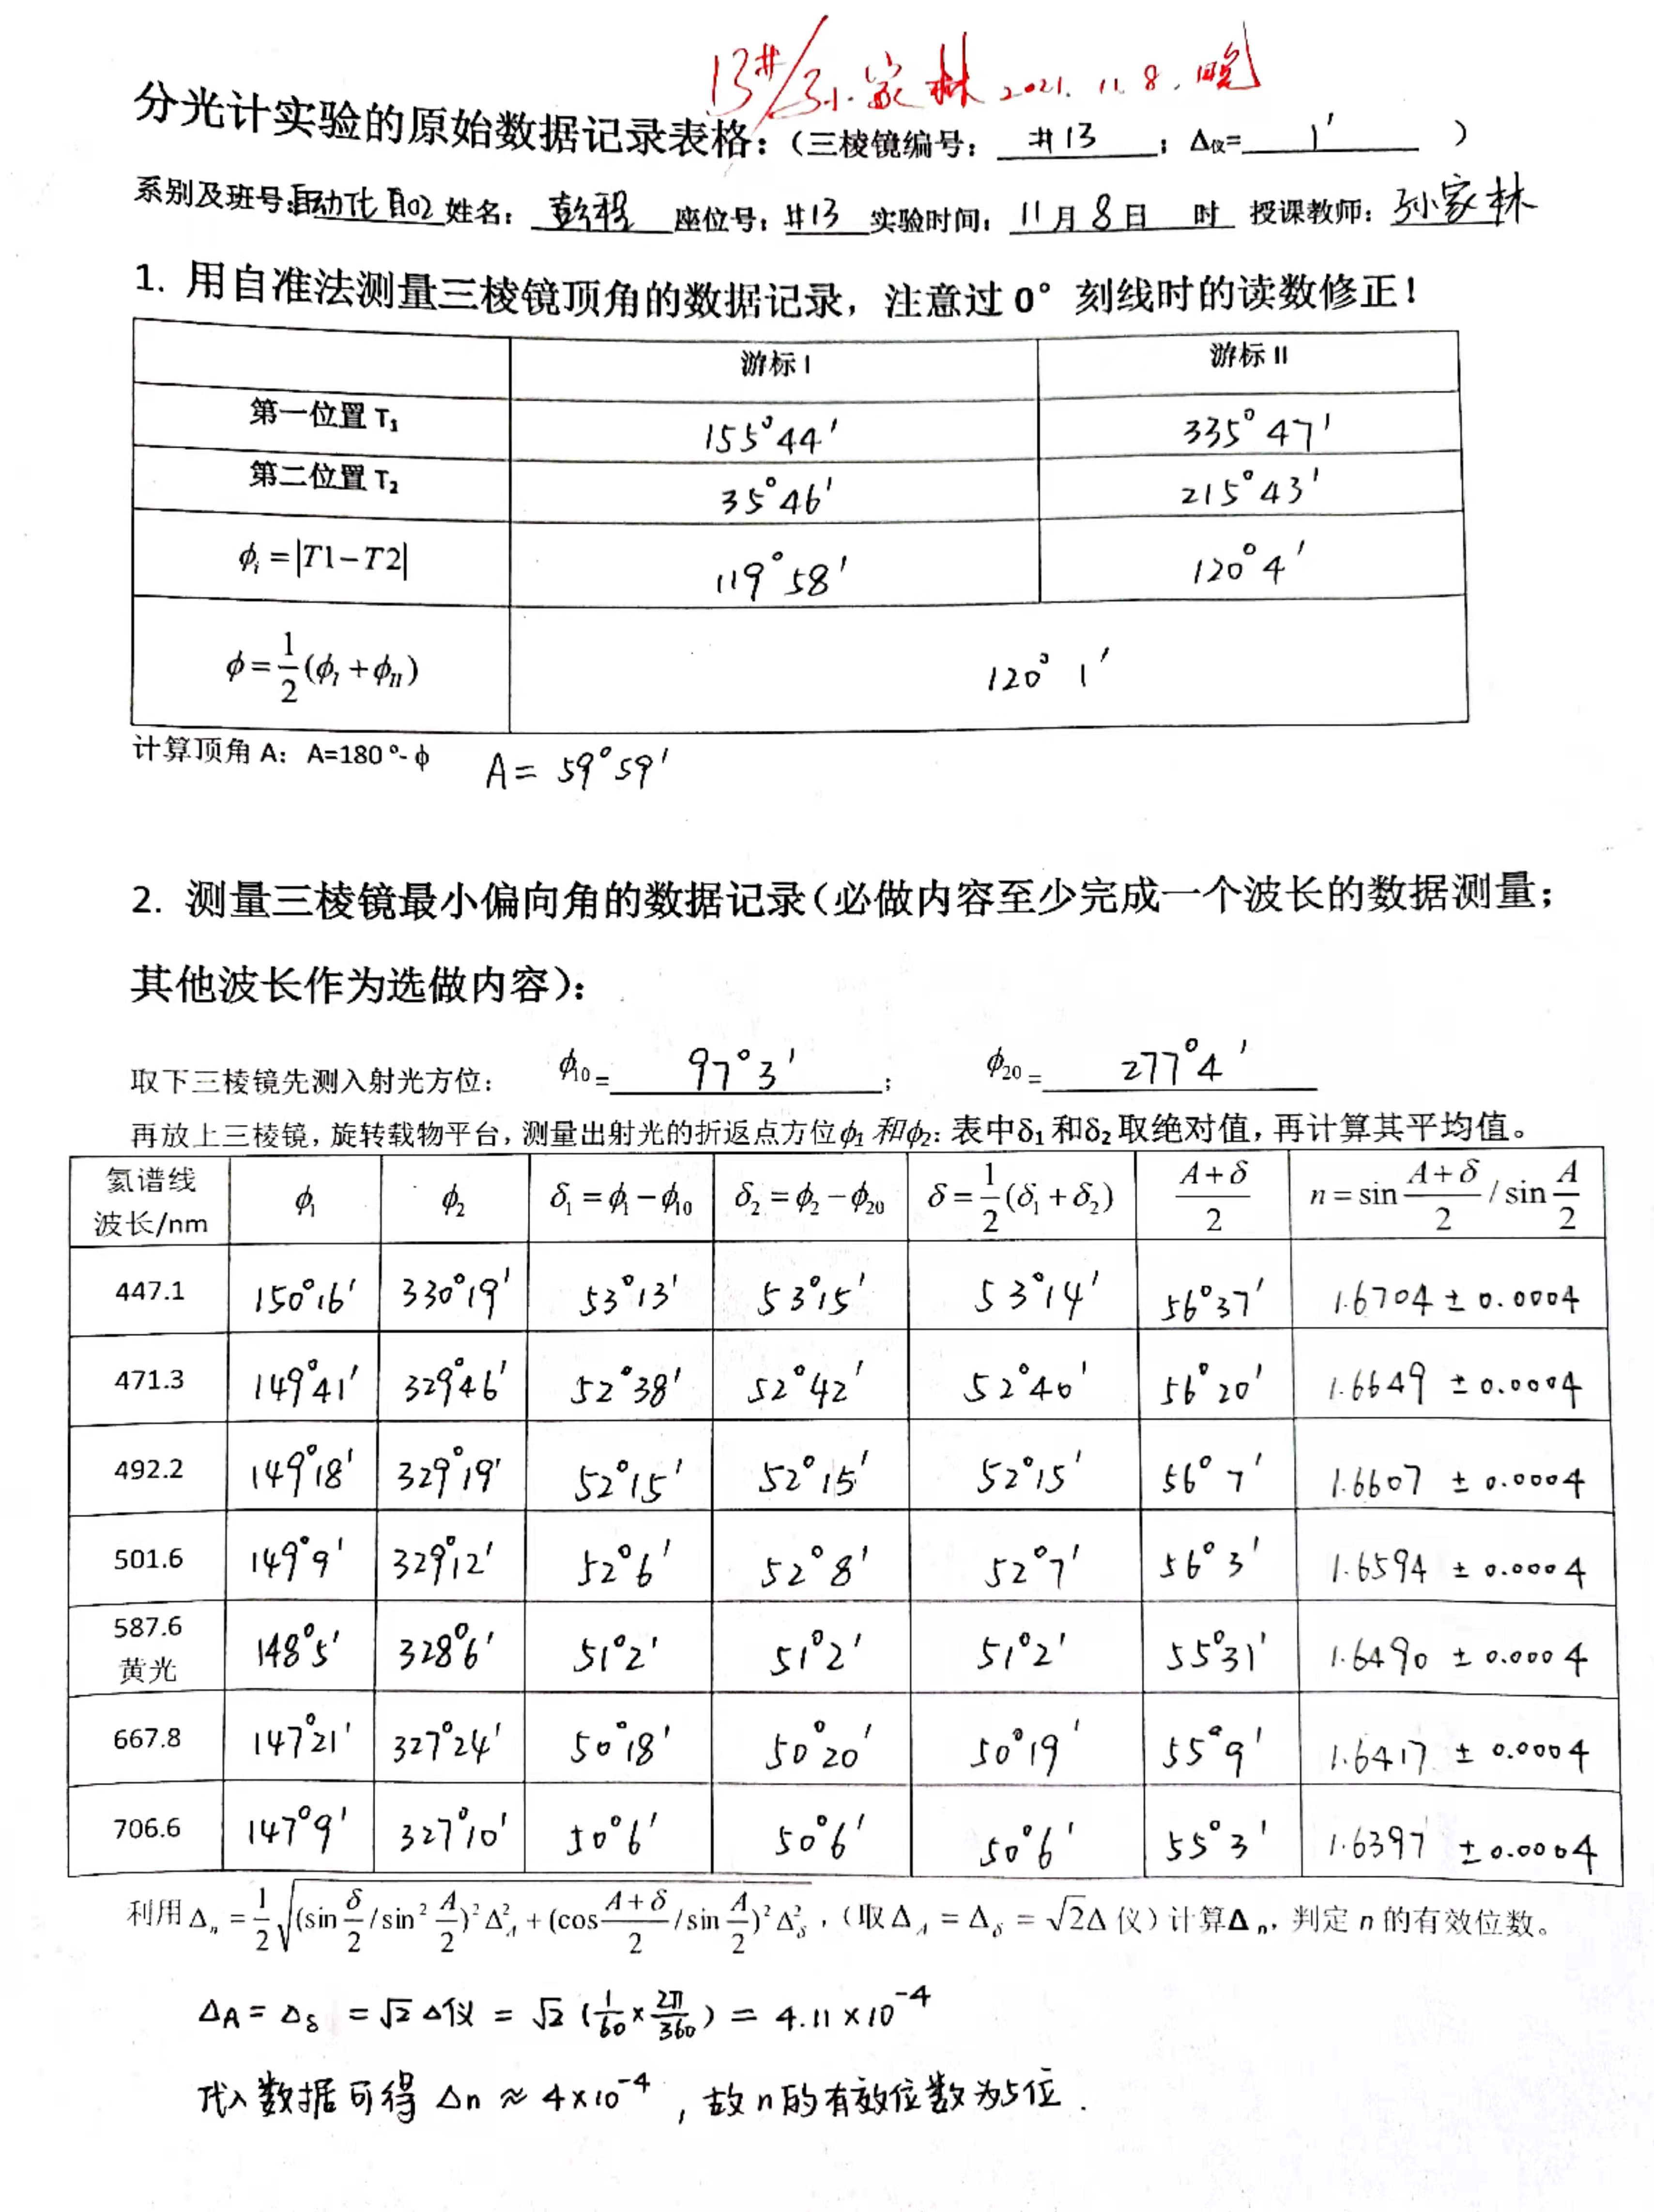 13#/孙家林 2021.11.8.晚
分光计实验的原始数据记录表格：（三棱镜编号： #13 ；Δ仪= 1′ ）
系别及班号：自动化自02 姓名： 彭程 座位号：#13 实验时间：11月8日 时 授课教师：孙家林
1. 用自准法测量三棱镜顶角的数据记录，注意过 0° 刻线时的读数修正！
游标 I 游标 II
第一位置 T₁ 155°44′ 335°47′
第二位置 T₂ 35°46′ 215°43′
ϕᵢ=|T1−T2| 119°58′ 120°4′
ϕ=1/2(ϕ_I+ϕ_II) 120°1′
计算顶角 A：A=180°-ϕ A=59°59′
2. 测量三棱镜最小偏向角的数据记录（必做内容至少完成一个波长的数据测量；
其他波长作为选做内容）：
取下三棱镜先测入射光方位： ϕ₁₀= 97°3′ ； ϕ₂₀= 277°4′
再放上三棱镜，旋转载物平台，测量出射光的折返点方位ϕ₁和ϕ₂：表中δ₁和δ₂取绝对值，再计算其平均值。
氦谱线波长/nm ϕ₁ ϕ₂ δ₁=ϕ₁−ϕ₁₀ δ₂=ϕ₂−ϕ₂₀ δ=1/2(δ₁+δ₂) (A+δ)/2 n=sin (A+δ)/2 / sin A/2
447.1 150°16′ 330°19′ 53°13′ 53°15′ 53°14′ 56°37′ 1.6704±0.0004
471.3 149°41′ 329°46′ 52°38′ 52°42′ 52°40′ 56°20′ 1.6649±0.0004
492.2 149°18′ 329°19′ 52°15′ 52°15′ 52°15′ 56°7′ 1.6607±0.0004
501.6 149°9′ 329°12′ 52°6′ 52°8′ 52°7′ 56°3′ 1.6594±0.0004
587.6 黄光 148°5′ 328°6′ 51°2′ 51°2′ 51°2′ 55°31′ 1.6490±0.0004
667.8 147°21′ 327°24′ 50°18′ 50°20′ 50°19′ 55°9′ 1.6417±0.0004
706.6 147°9′ 327°10′ 50°6′ 50°6′ 50°6′ 55°3′ 1.6397±0.0004
利用 Δₙ=1/2√((sin δ/2 / sin² A/2)²Δ_A²+(cos (A+δ)/2 / sin A/2)²Δ_δ²)，（取Δ_A=Δ_δ=√2Δ仪）计算Δₙ，判定 n 的有效位数。
ΔA=Δδ=√2Δ仪=√2(1/60×2π/360)=4.11×10⁻⁴
代入数据可得 Δn≈4×10⁻⁴，故n的有效位数为5位.